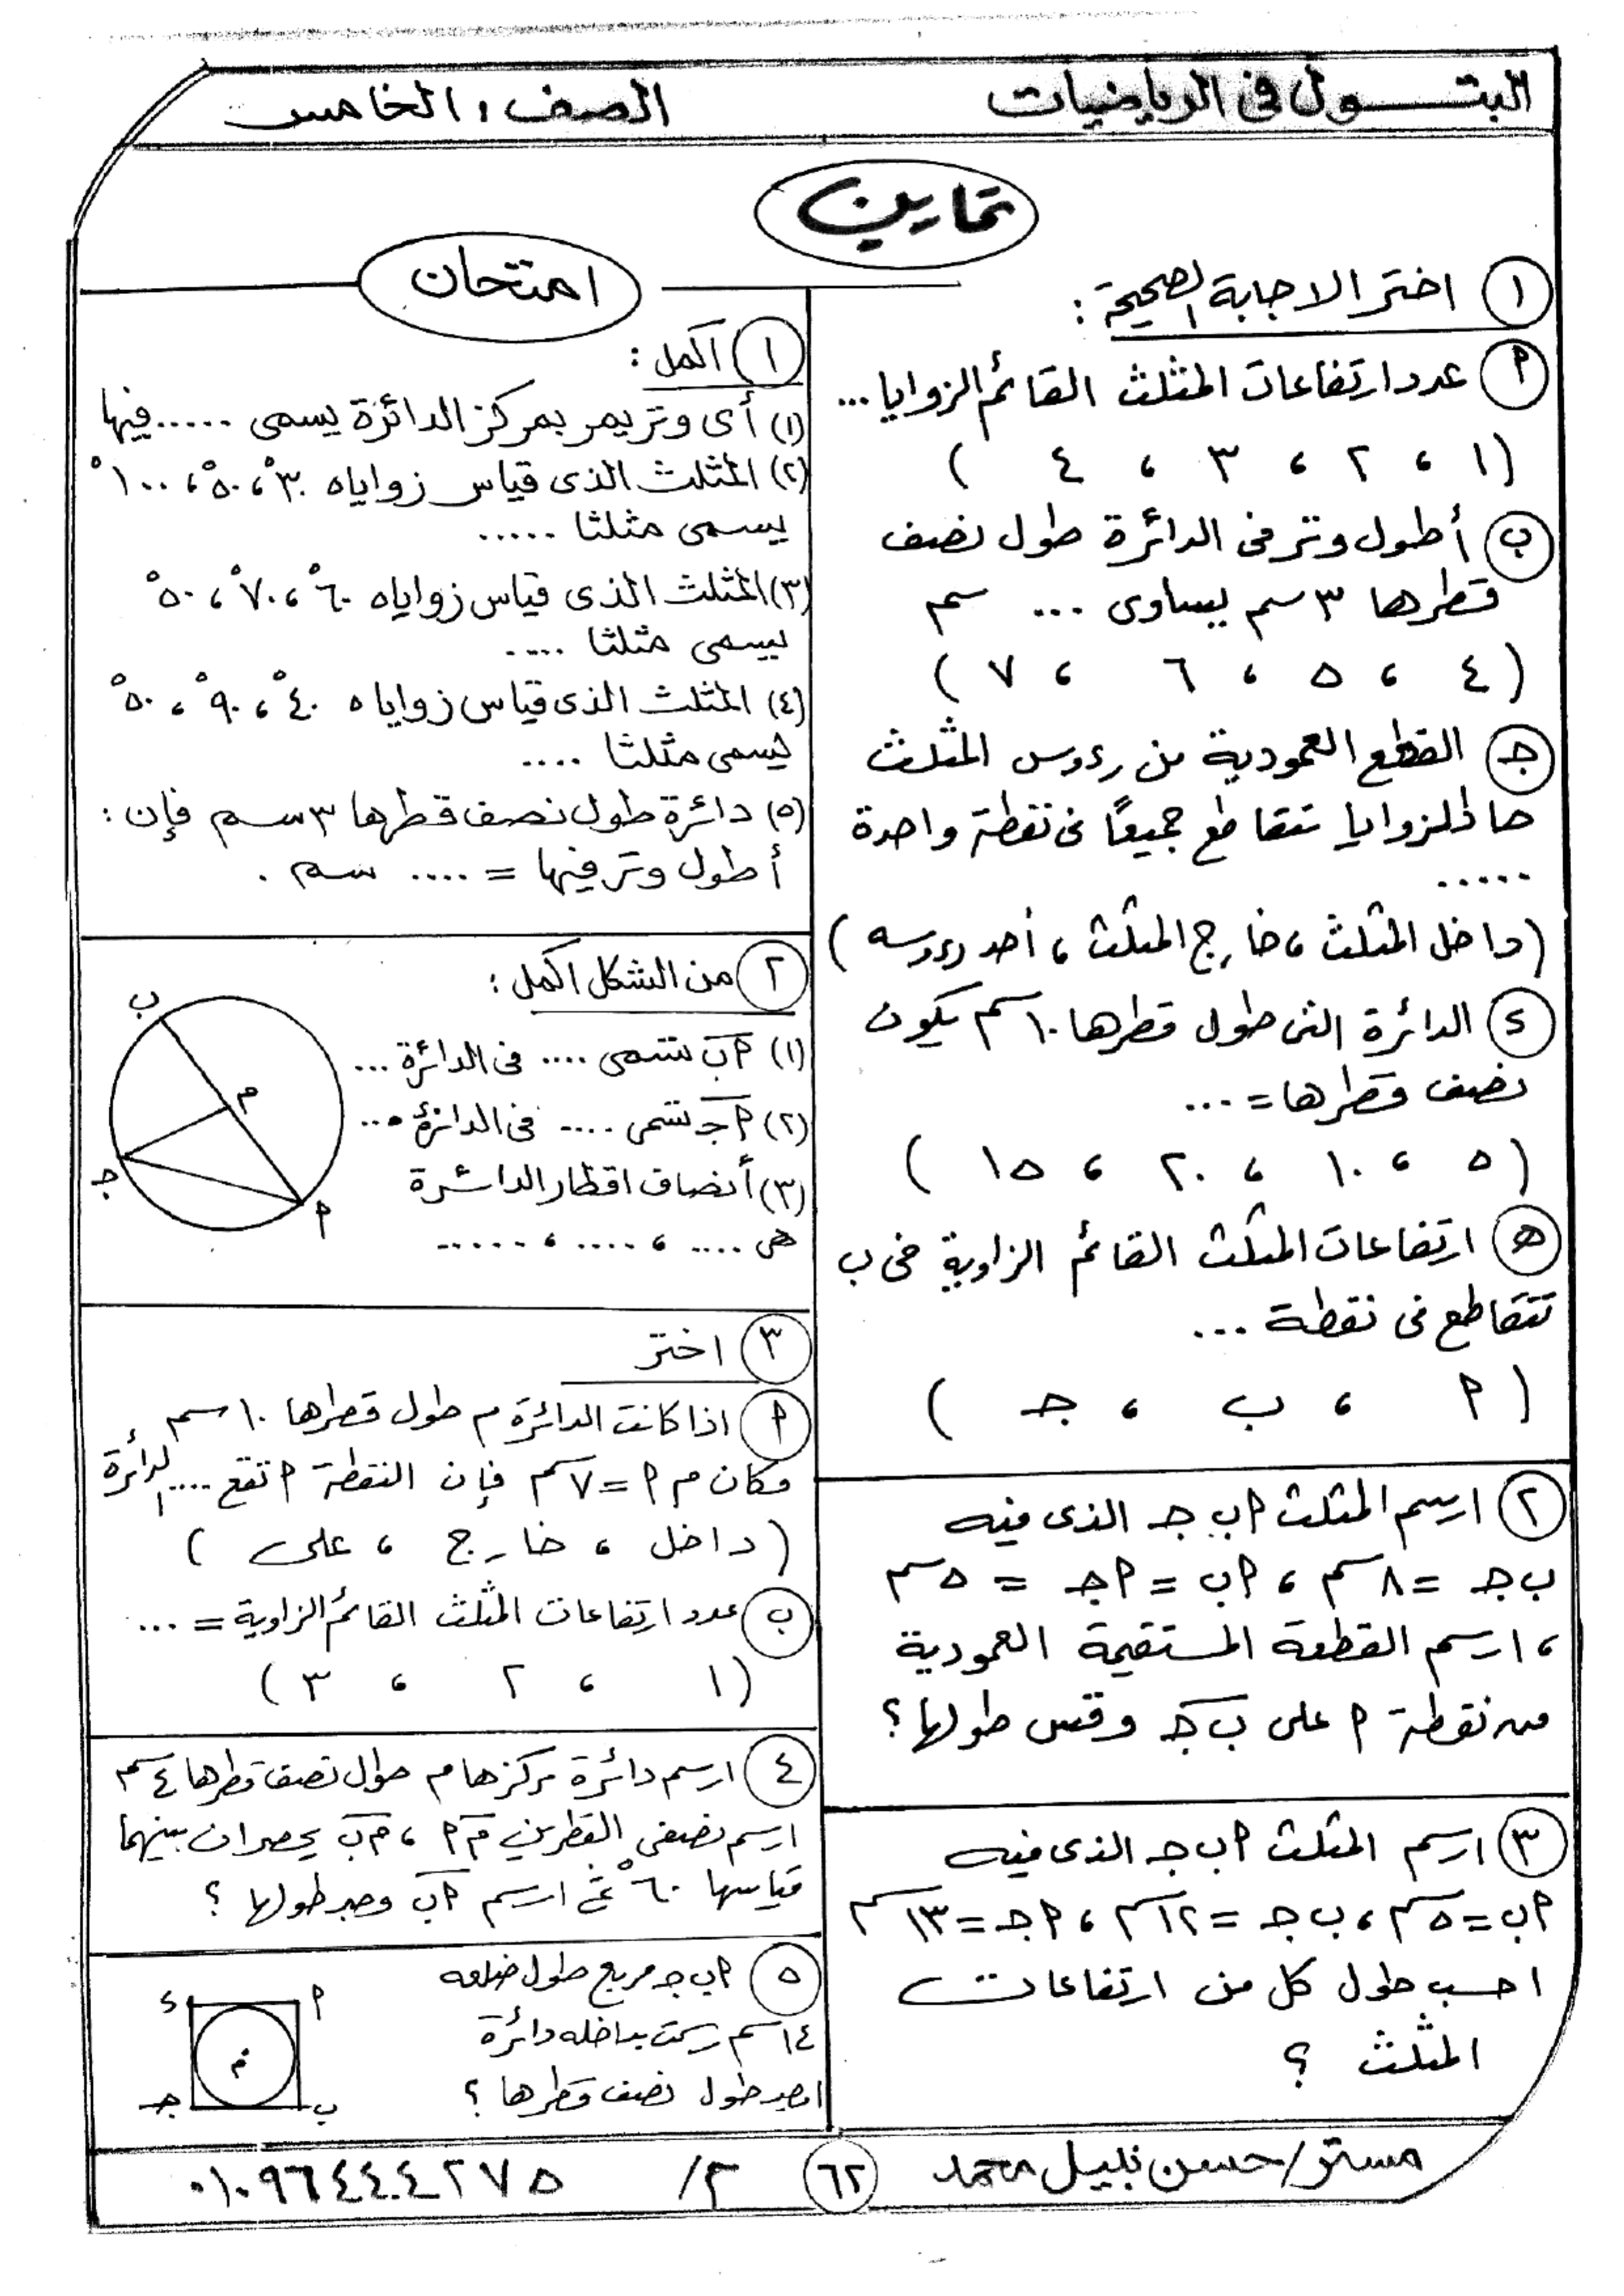 البتـــول فى الرياضيات
الصف / الخامس
تمارين
١ اختر الاجابة الصحيحة :
أ عدد ارتفاعات المثلث القائم الزوايا ...
( ١ ، ٢ ، ٣ ، ٤ )
ب أطول وتر فى الدائرة طول نصف
قطرها ٣ سم يساوى ... سم
( ٤ ، ٥ ، ٦ ، ٧ )
جـ القطع العمودية من رءوس المثلث
حاد الزوايا تتقاطع جميعًا فى نقطة واحدة
.....
( داخل المثلث ، خارج المثلث ، أحد رءوسه )
د الدائرة التى طول قطرها ١٠ سم يكون
نصف قطرها = ...
( ٥ ، ١٠ ، ٢٠ ، ١٥ )
هـ ارتفاعات المثلث القائم الزاوية فى ب
تتقاطع فى نقطة ...
( أ ، ب ، جـ )
٢ ارسم المثلث أ ب جـ الذى فيه
ب جـ = ٨ سم ، أ ب = أ جـ = ٥ سم
، ارسم القطعة المستقيمة العمودية
من نقطة أ على ب جـ وقس طولها ؟
٣ ارسم المثلث أ ب جـ الذى فيه
أ ب = ٥ سم ، ب جـ = ١٢ سم ، أ جـ = ١٣ سم
احسب طول كل من ارتفاعات
المثلث ؟
امتحان
١ أكمل :
(١) أى وتر يمر بمركز الدائرة يسمى ..... فيها
(٢) المثلث الذى قياس زواياه ٣٠° ، ٥٠° ، ١٠٠°
يسمى مثلثا .....
(٣) المثلث الذى قياس زواياه ٦٠° ، ٧٠° ، ٥٠°
يسمى مثلثا ....
(٤) المثلث الذى قياس زواياه ٤٠° ، ٩٠° ، ٥٠°
يسمى مثلثا ....
(٥) دائرة طول نصف قطرها ٣ سم فإن :
أطول وتر فيها = .... سم .
٢ من الشكل أكمل :
(١) أ ب تسمى .... فى الدائرة ...
(٢) أ جـ تسمى .... فى الدائرة ...
(٣) أنصاف اقطار الدائرة
هى .... ، .... ، ......
ب
م
جـ
أ
٣ اختر
أ اذا كانت الدائرة م طول قطرها ١٠ سم ،
وكان م أ = ٧ سم فإن النقطة أ تقع .... الدائرة
( داخل ، خارج ، على )
ب عدد ارتفاعات المثلث القائم الزاوية = ...
( ١ ، ٢ ، ٣ )
٤ ارسم دائرة مركزها م طول نصف قطرها ٤ سم
ارسم نصفى القطرين م أ ، م ب يحصران بينهما
قياسها ٦٠° ثم ارسم أ ب وجد طولها ؟
٥ أ ب جـ مربع طول ضلعه
١٤ سم رسمت بداخله دائرة
اوجد طول نصف قطرها ؟
د
أ
م
جـ
ب
مستر / حسن نبيل محمد
٦٢
م / ٠١٠٩٦٤٤٤٢٧٥